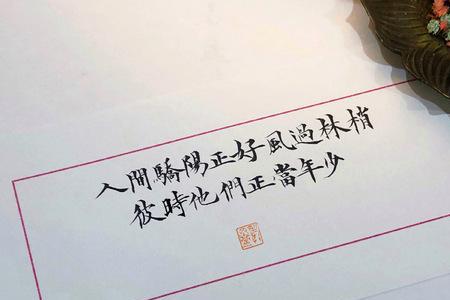 人間驕陽正好風過林梢
彼時他們正當年少